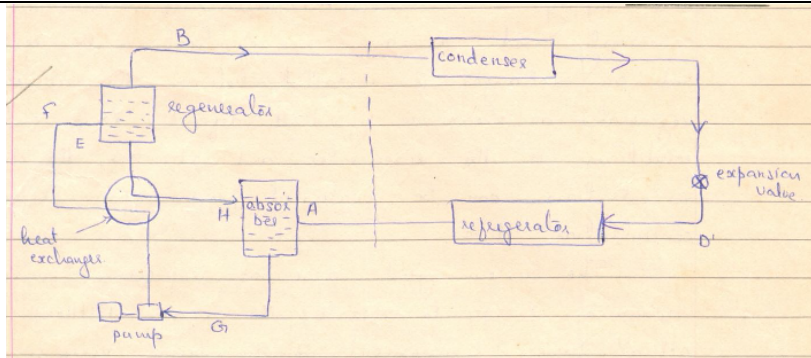 B
condenser
F
regenerator
E
expansion
valve
H
absor
ber
A
refregerator
D'
heat
exchanger
G
pump